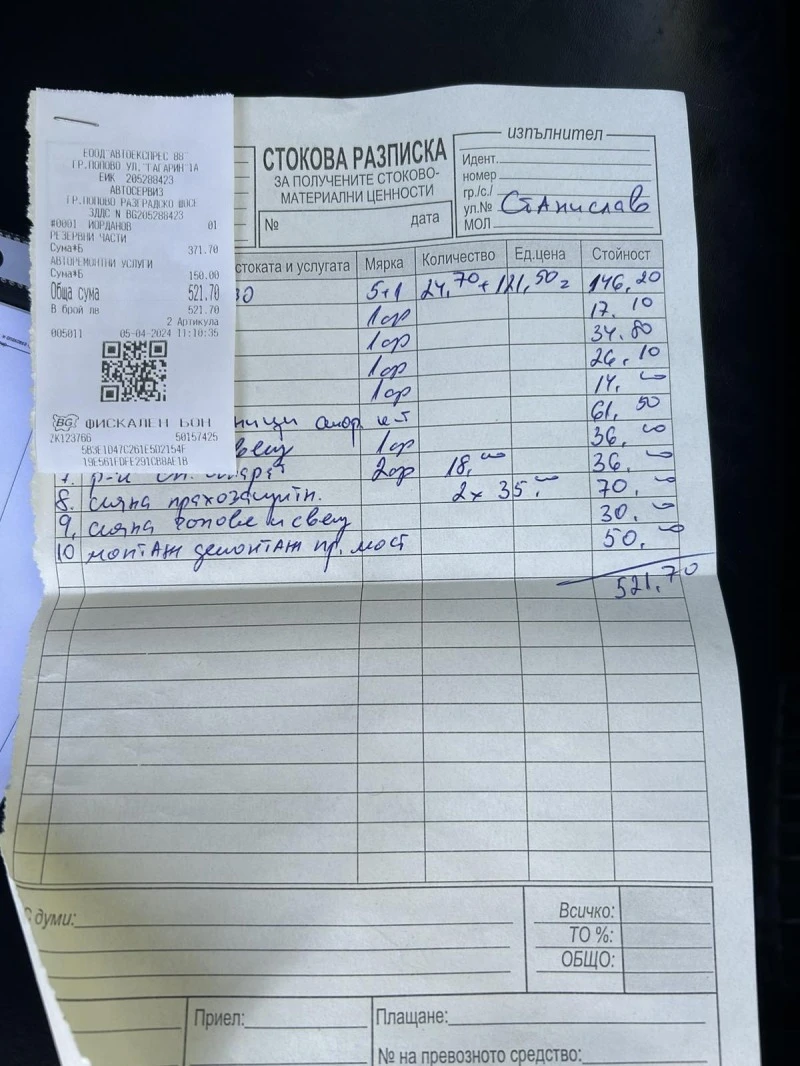 ЕООД "АВТОЕКСПРЕС 88"
ГР.ПОПОВО УЛ."ГАГАРИН"1А
ЕИК 205288423
АВТОСЕРВИЗ
ГР.ПОПОВО РАЗГРАДСКО ШОСЕ
ЗДДС N BG205288423
#0001 ЙОРДАНОВ 01
РЕЗЕРВНИ ЧАСТИ
Сума*Б 371.70
АВТОРЕМОНТНИ УСЛУГИ
Сума*Б 150.00
Обща сума 521.70
В брой лв 521.70
2 Артикула
005011 05-04-2024 11:10:35
BG ФИСКАЛЕН БОН
ZK123766 50157425
5B3E1D47C261E5D2154F
19E561FDFE291CB8AE1B
СТОКОВА РАЗПИСКА
ЗА ПОЛУЧЕНИТЕ СТОКОВО-
МАТЕРИАЛНИ ЦЕННОСТИ
№ дата
изпълнител
Идент.
номер
гр./с./
ул.№ Станислав
МОЛ
стоката и услугата Мярка Количество Ед.цена Стойност
30 5+1 24,70 + 121,50 = 146,20
1бр 17.10
1бр 34.80
1бр 26.10
1бр 14.00
61,50
1бр 36.00
7. 2бр 18,00 36,00
8. смяна прахозащитн. 2x 35,00 70,00
9. смяна 30.00
10 монтаж демонтаж пр. мост 50.00
521,70
думи:
Всичко:
ТО %:
ОБЩО:
Приел:
Плащане:
№ на превозното средство: